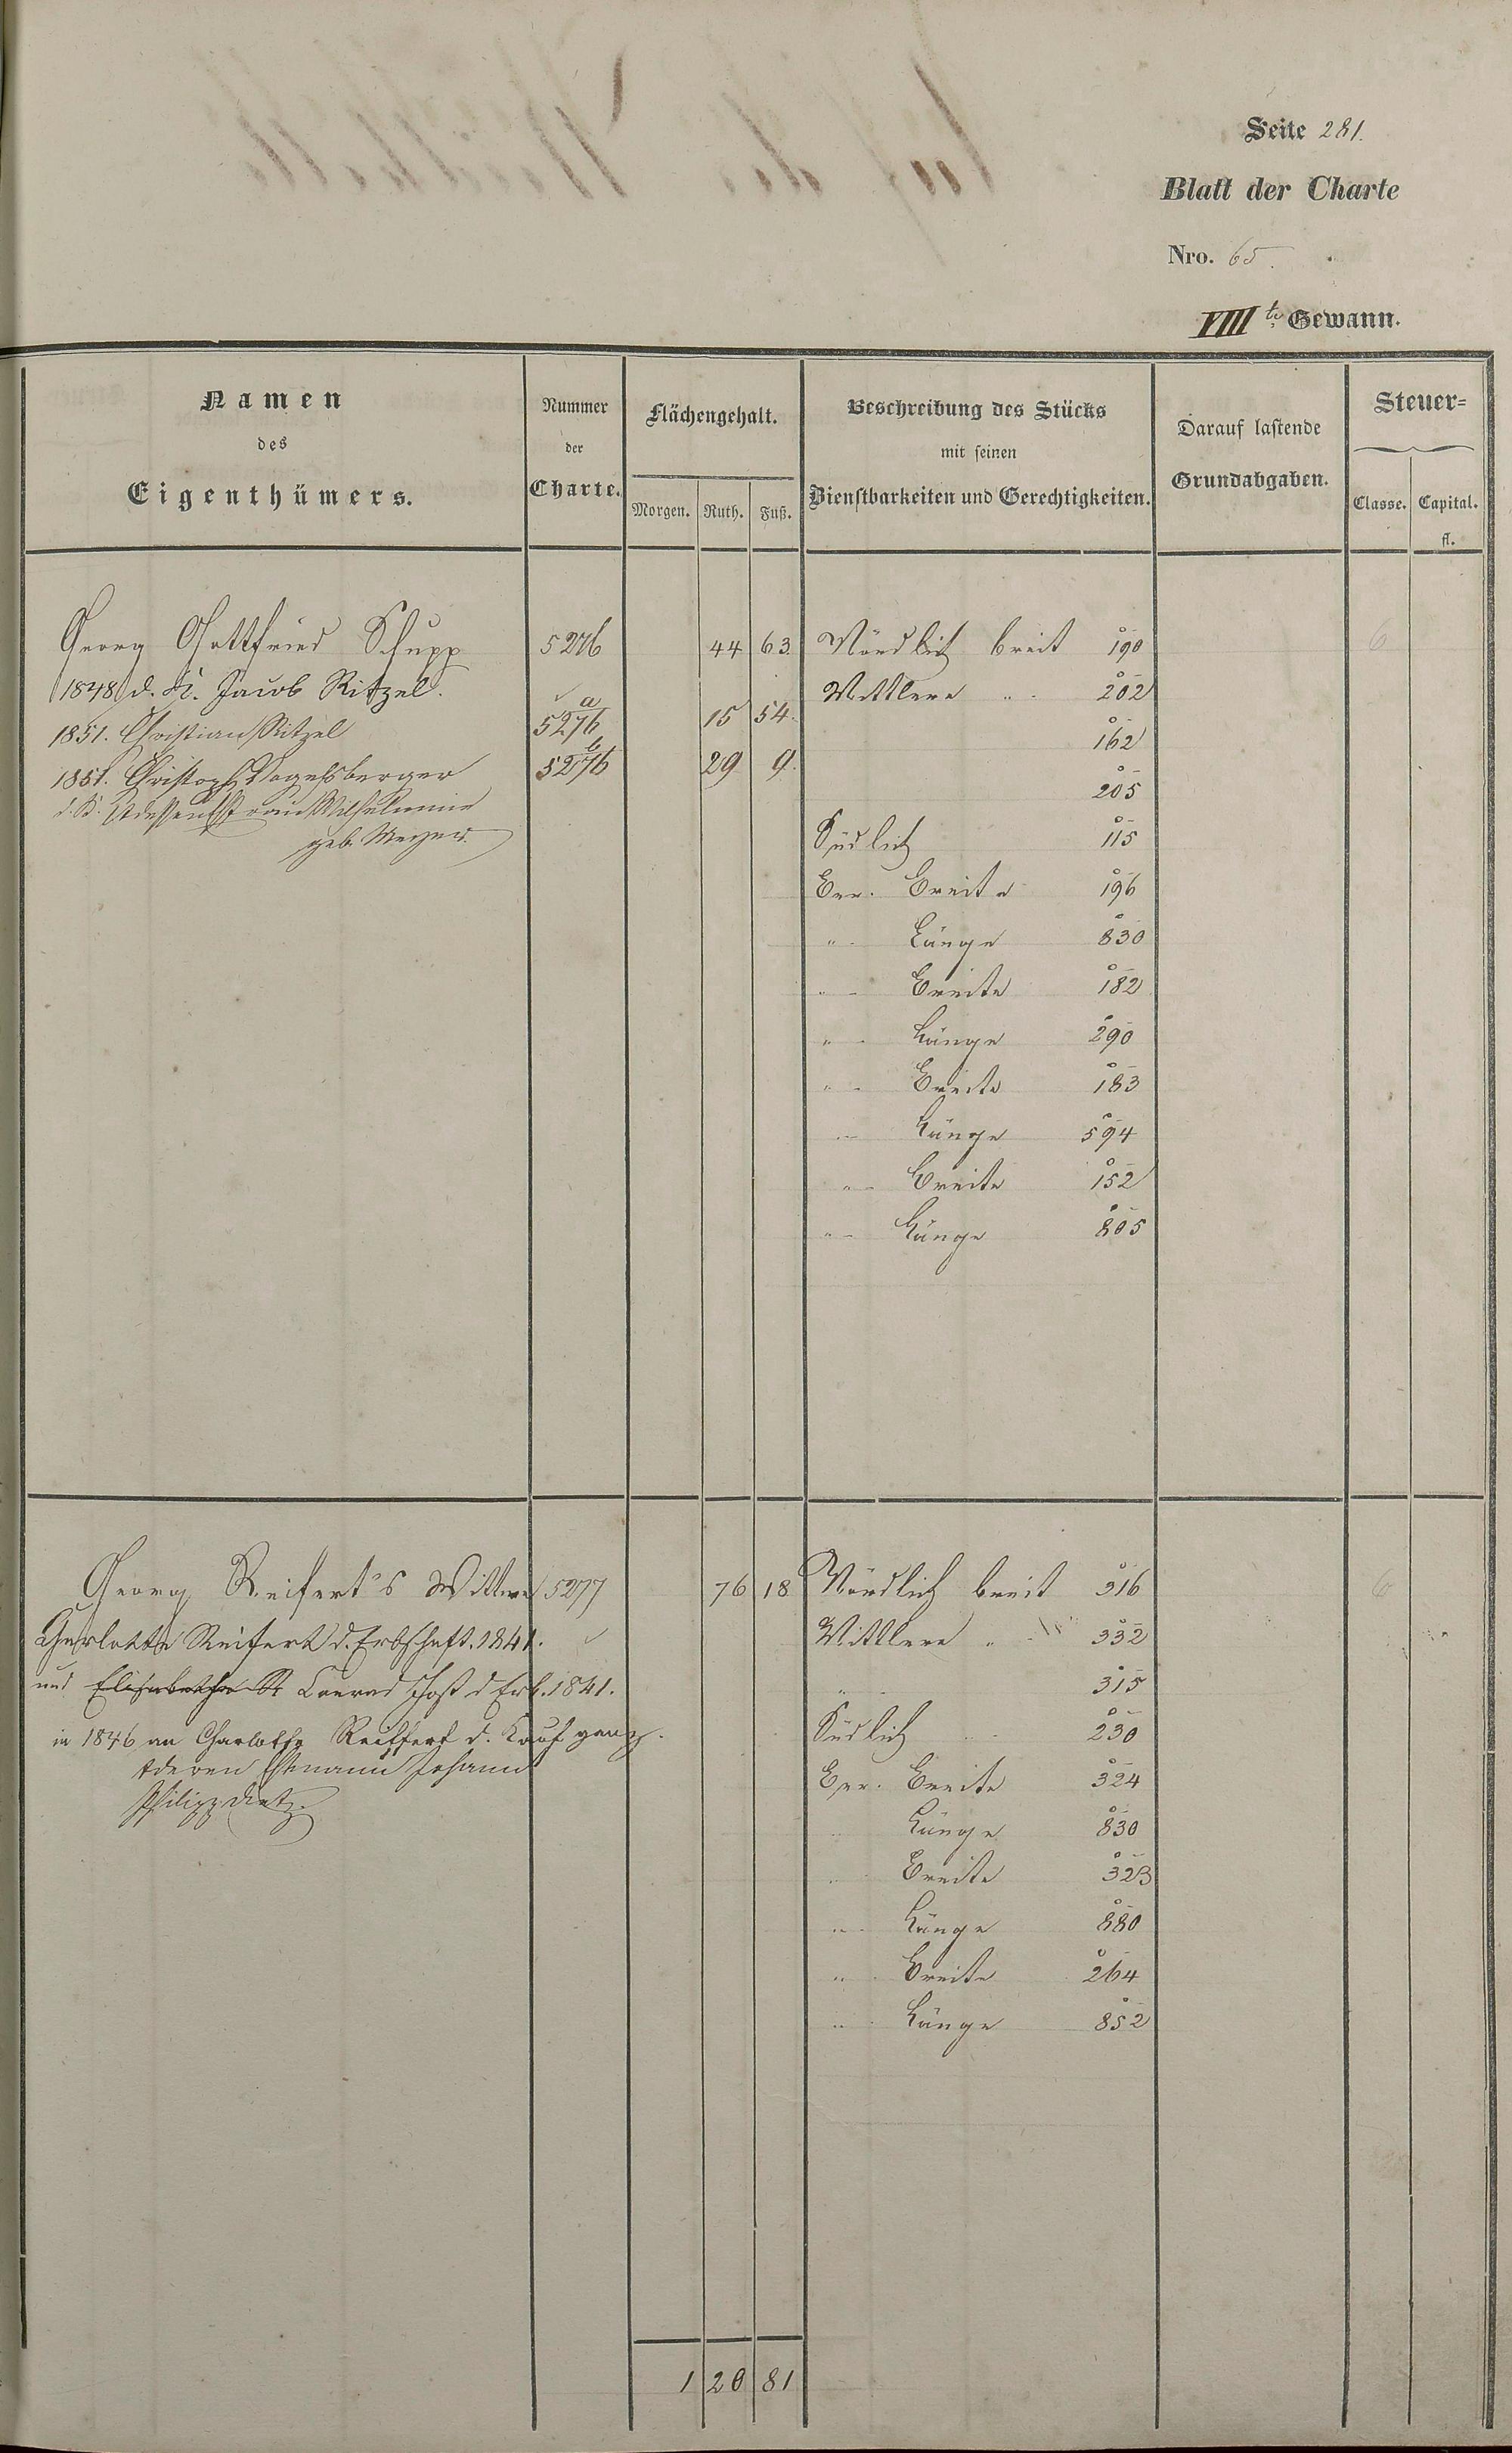 Seite 281.
Blatt der Charte
Nro. 65.
VIII te Gewann.
Namen
des
Eigenthümers.
Nummer
der
Charte.
Flächengehalt.
Morgen. Ruth. Fuß.
Beschreibung des Stücks
mit seinen
Dienstbarkeiten und Gerechtigkeiten.
Darauf lastende
Grundabgaben.
Steuer=
Classe. Capital.
fl.
Georg Gottfried Schupp 5276 44 63 Nördlich breit 190 6
1848 d. K. Jacob Ritzel. Mittlere " 202
1851. Christian Ritzel 5276 a 15 54. 162
1851. Christoph Vogelsberger 5276 b 29 9. 205
d. K. dessen Frau Wilhelmine
geb. Meyer. Südlich 115
Ver. Breite 196
" Länge 830
" Breite 182
" Länge 290
" Breite 183
" Länge 594
" Breite 152
" Länge 805
Georg Reifert's Wittwe 5277 76 18 Nördlich breit 316 6
Charlotte Reifert d. Erbschaft. 1841. Mittlere " 332
und Elisabetha Conrad Jost d Erb. 1841. " 315
in 1846 an Charlotte Reiffert d. Kauf ganz. Südlich 230
deren Ehmann Johann Ver. Breite 324
Philipp Dietz. Länge 830
Breite 323
" Länge 880
" Breite 264
" Länge 852
1 20 81